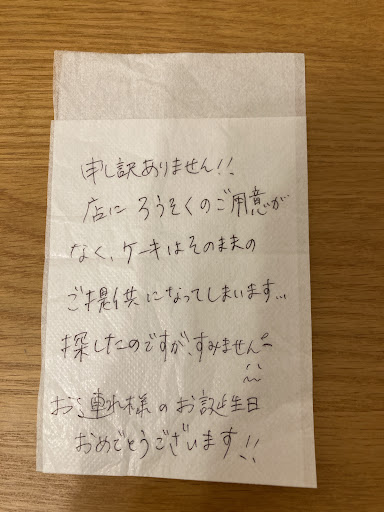 申し訳ありません!!
店に ろうそくのご用意が
なく、ケーキはそのままの
ご提供になってしまいます...
探したのですが、すみません
お連れ様のお誕生日
おめでとうございます!!